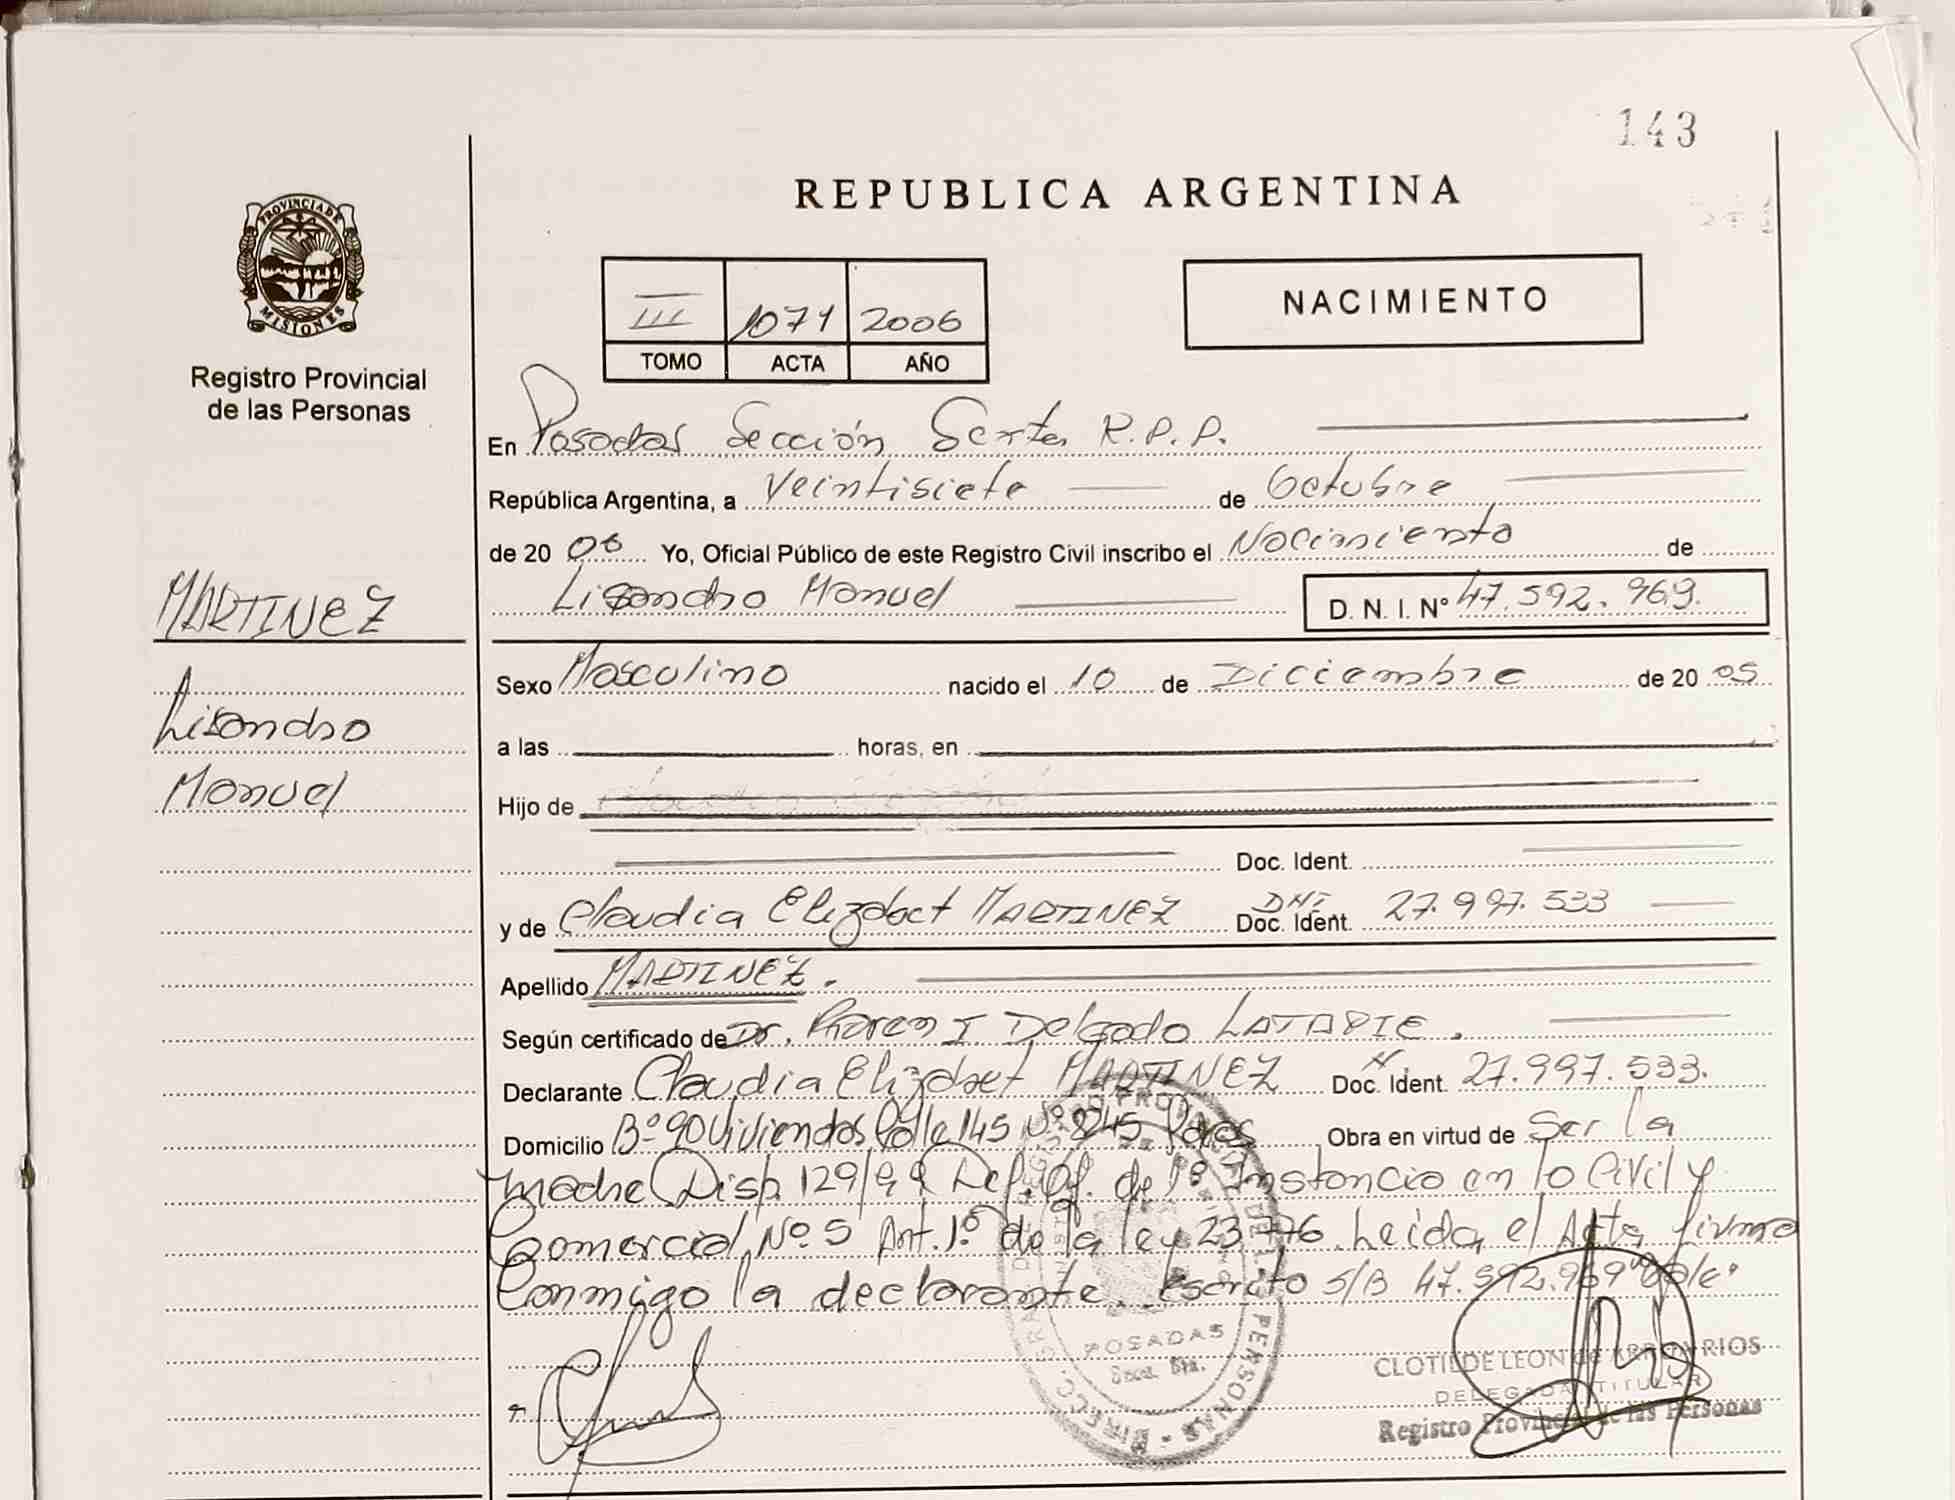 143
REPUBLICA ARGENTINA
PROVINCIA DE
MISIONES
Registro Provincial
de las Personas
III 1071 2006
TOMO ACTA AÑO
NACIMIENTO
En Posadas Sección Sexta R.P.P.
República Argentina, a Veintisiete de Octubre
de 20 06 Yo, Oficial Público de este Registro Civil inscribo el Nacimiento de
Lisandro Manuel D. N. I. Nº 47.592.969.
MARTINEZ
Lisandro
Manuel
Sexo Masculino nacido el 10 de Diciembre de 20 05
a las horas, en
Hijo de
Doc. Ident.
y de Claudia Elizabet MARTINEZ DNI Doc. Ident. 27.997.533
Apellido MARTINEZ.
Según certificado de Dr. I Delgado LATAPIE.
Declarante Claudia Elizabet MARTINEZ Doc. Ident. 27.997.533.
Domicilio Bº 90 Viviendas Calle 145 Nº Obra en virtud de Ser la
madre Disp. 129/99 Def. Of. de 1º Instancia en lo Civil y
Comercial Nº 5 Art. 1º de la ley 23.776. Leída el Acta firma
Conmigo la declarante. Escrito S/B 47.592.969 "Vale"
POSADAS
Secc. 6ta.
CLOTILDE LEON de RIOS
DELEGADA TITULAR
Registro Provincial de las Personas